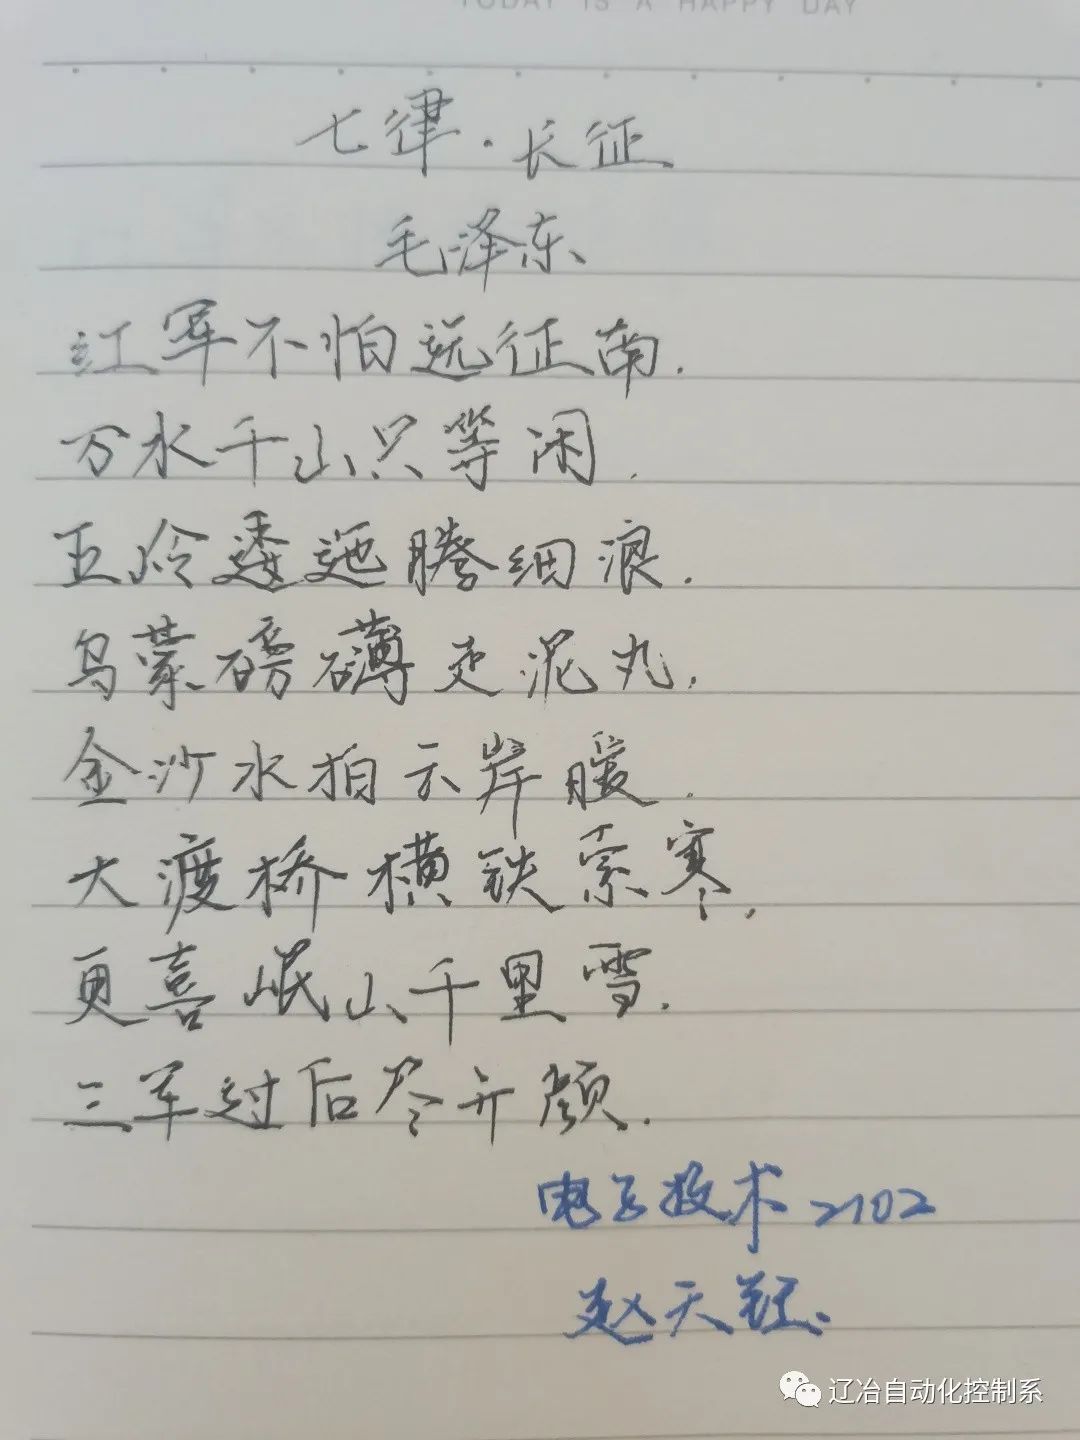 TODAY IS A HAPPY DAY
七律·长征
毛泽东
红军不怕远征南.
万水千山只等闲.
五冷逶迤腾细浪.
乌蒙磅礴走泥丸.
金沙水拍云岸暖.
大渡桥横铁索寒.
更喜岷山千里雪.
三军过后尽开颜.
电子技术2102
赵天
辽冶自动化控制系